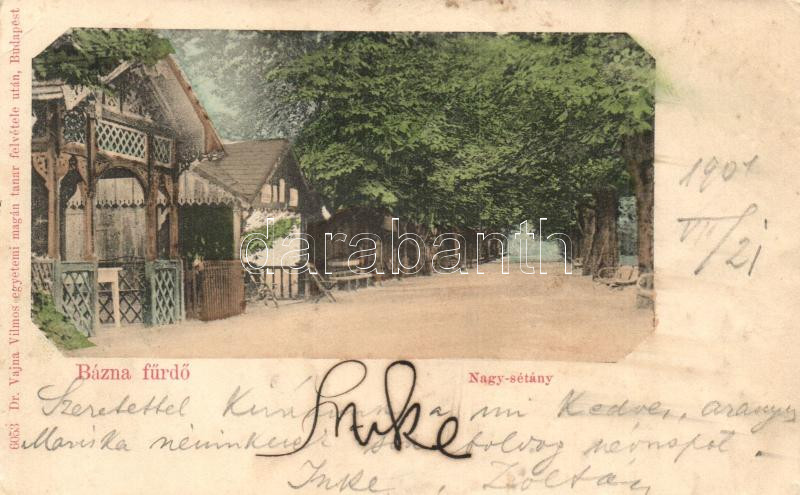 6053 Dr. Vajna Vilmos egyetemi magán tanar felvétele után, Budapest
darabanth.com
1901
VI/21
Bázna fűrdő
Nagy-sétány
Szeretettel a mi Kedves, aranyos
Mariska néninknek boldog névnapot.
Inke
Inke, Zoltán